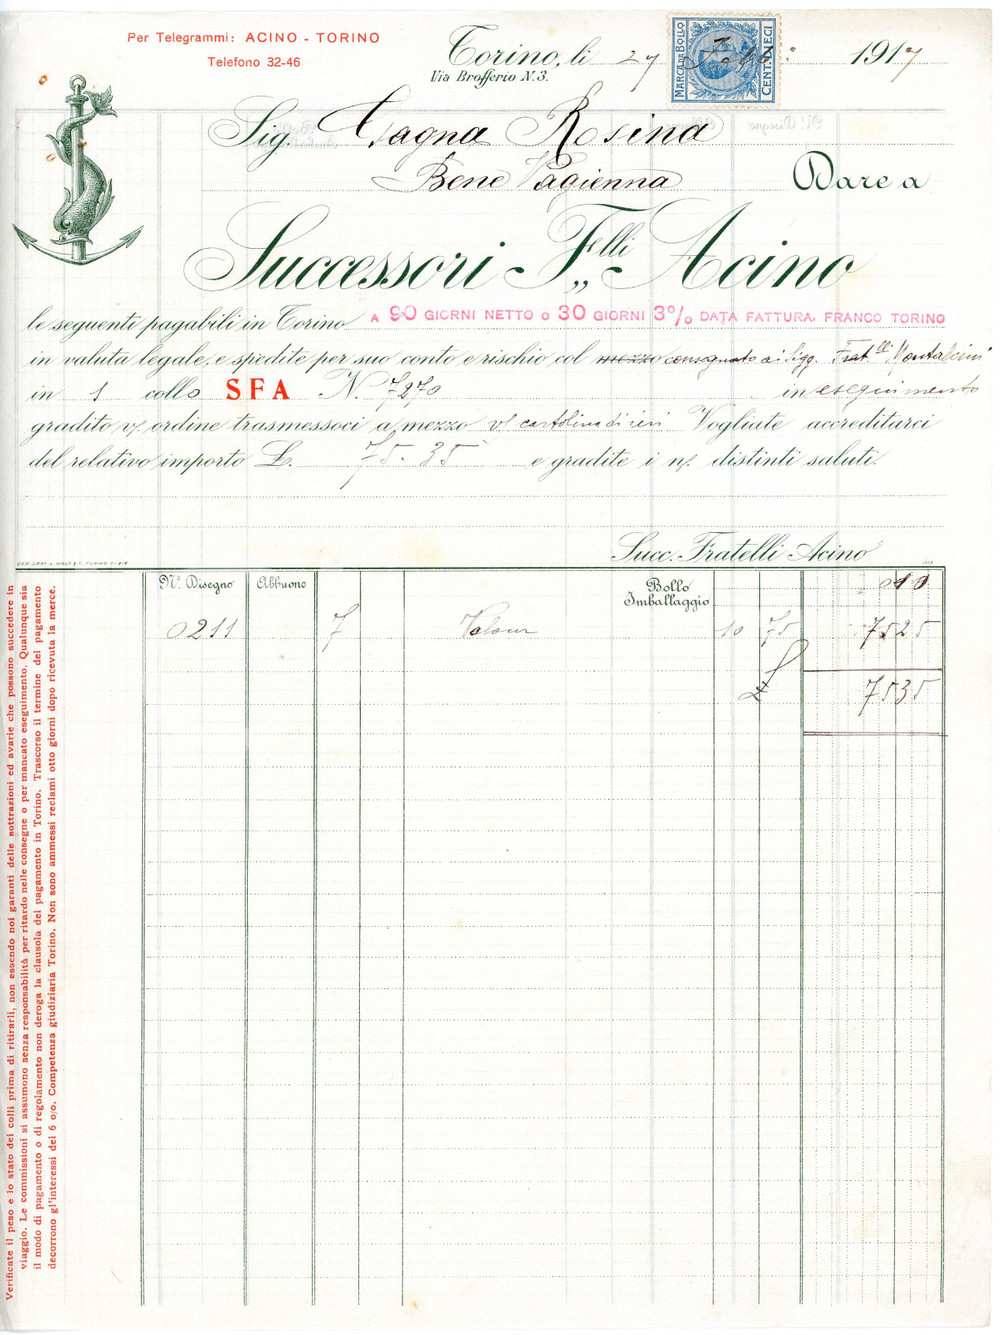 Per Telegrammi: ACINO - TORINO
Telefono 32-46
Torino, li 27 1917
Via Brofferio N. 3.
MARCA DA BOLLO
CENT. DIECI
Sig. Gagna Rosina
Bene Vagienna Dare a
Successori F.lli Acino
le seguenti pagabili in Torino A 90 GIORNI NETTO O 30 GIORNI 3% DATA FATTURA. FRANCO TORINO
in valuta legale, e spedite per suo conto e rischio col mezzo consegnato ai Sigg. Frat.lli Montalcini
in 1 collo SFA N. 7270 in eseguimento
gradito v/ ordine trasmessoci a mezzo v/ cartolina di ieri Vogliate accreditarci
del relativo importo £. 75.35 e gradite i n/ distinti saluti.
Succ. Fratelli Acino
N.º Disegno Abbuono Bollo 010
Imballaggio
0211 7 Velour 10 75 7525
£ 7535
Verificate il peso e lo stato dei colli prima di ritirarli, non essendo noi garanti delle sottrazioni ed avarie che possono succedere in
viaggio. Le commissioni si assumono senza responsabilità per ritardo nelle consegne o per mancato eseguimento. Qualunque sia
il modo di pagamento o di regolamento non deroga la clausola del pagamento in Torino. Trascorso il termine del pagamento
decorrono gl'interessi del 6 o/o. Competenza giudiziaria Torino. Non sono ammessi reclami otto giorni dopo ricevuta la merce.